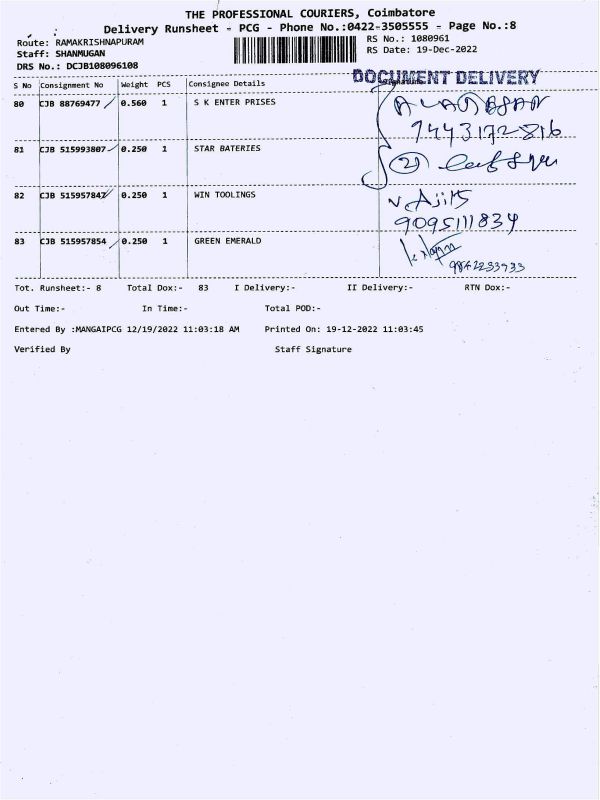 THE PROFESSIONAL COURIERS, Coimbatore
Delivery Runsheet - PCG - Phone No.:0422-3505555 - Page No.:8
Route: RAMAKRISHNAPURAM RS No.: 1080961
Staff: SHANMUGAN RS Date: 19-Dec-2022
DRS No.: DCJB108096108
DOCUMENT DELIVERY
S No Consignment No Weight PCS Consignee Details Signature
80 CJB 88769477 0.560 1 S K ENTER PRISES
7443172816
81 CJB 515993807 0.250 1 STAR BATERIES
(2)
82 CJB 515957847 0.250 1 WIN TOOLINGS
9095111834
83 CJB 515957854 0.250 1 GREEN EMERALD
9842233933
Tot. Runsheet:- 8 Total Dox:- 83 I Delivery:- II Delivery:- RTN Dox:-
Out Time:- In Time:- Total POD:-
Entered By :MANGAIPCG 12/19/2022 11:03:18 AM Printed On: 19-12-2022 11:03:45
Verified By Staff Signature